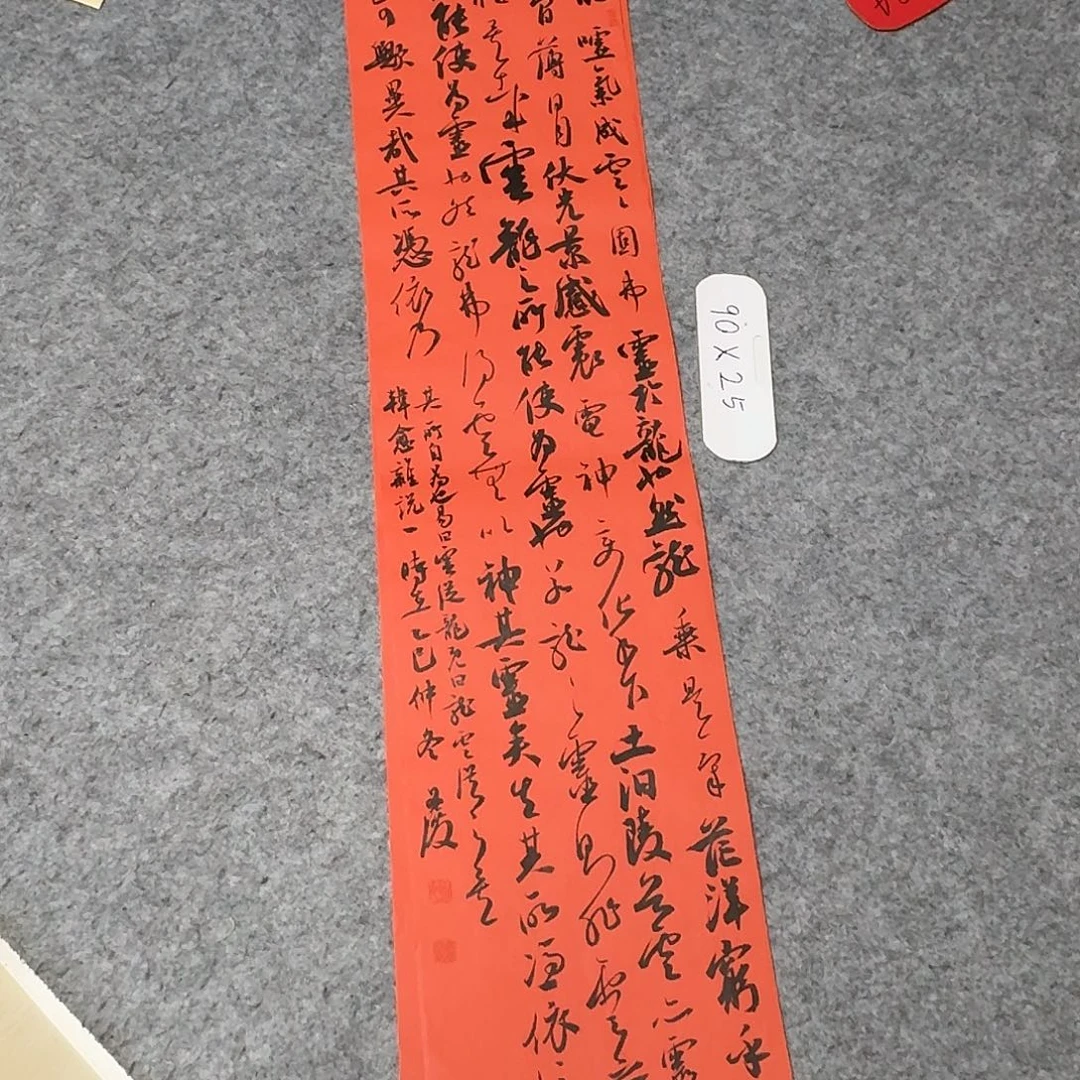 噓氣成雲雲固弗靈於龍也然龍乘是氣茫洋窮乎
薄日月伏光景感震電神變化水下土汩陵谷雲亦靈
矣哉雲龍之所能使為靈也若龍之靈則非雲之所
能使為靈也然龍弗得雲無以神其靈矣失其所憑依
可歟異哉其所憑依乃
其所自為也易曰雲從龍既曰龍雲從之矣
韓愈雜說一時在乙巳仲冬
90X25